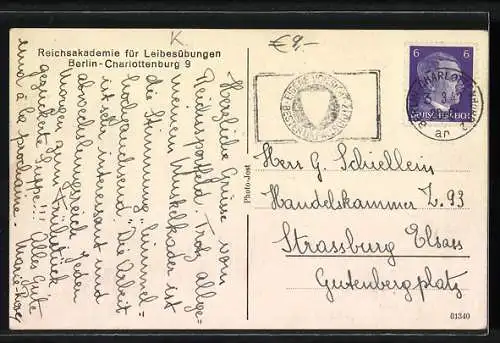 K
€ 9,-
Reichsakademie für Leibesübungen
Berlin-Charlottenburg 9
Herzliche Grüsse vom
Reichssportfeld. Trotz allge=
meinem Muskelkader ist
die Stimmung "himmel=
hochjauchzend". Die Arbeit
ist sehr interessant und
abwechslungsreich. Jeden
Morgen zum Frühstück
gezuckerte Suppe!!! Alles Gute
und à la prochaine.
6 6
DEUTSCHES REICH
CHARLOTTENBURG 2
an
Herr G. Schiellein
Handelskammer Z. 93
Strassburg Elsass
Gutenbergplatz
Photo-Jost
01340